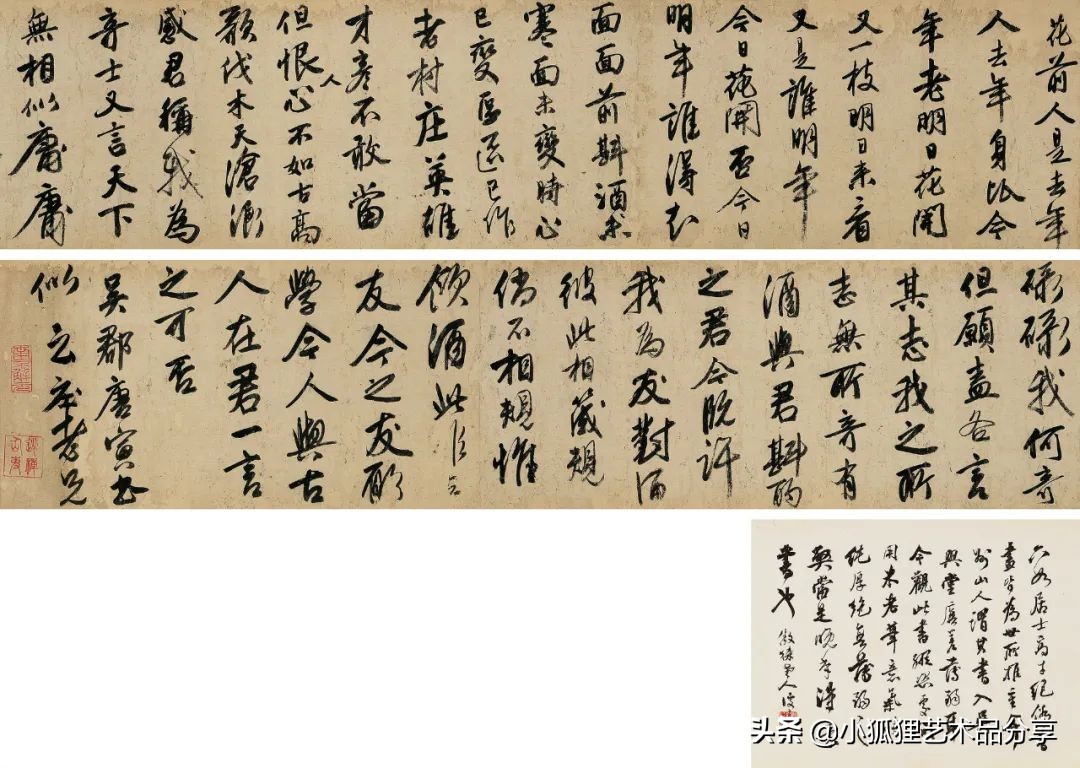 花前人是去年
人去年身比今
年老明日花開
又一枝明日來看
又是誰明年
今日花開否今日
明年誰得知
面面前斟酒未
寒面未變時心
已變區區已作
老村庄英雄
才彥不敢當
但恨人心不如古高
歌伐木天滄浪
感君稱我為
奇士又言天下
無相似庸庸
碌碌我何奇
但願盡各言
其志我之所
志無所奇有
酒與君斟酌
之君今既許
我為友對酒
彼此相箴規
倘不相規惟
傾酒此
友今之友
學今人與古
人在君一言
之可否
吳郡唐寅書
似云莊老兄
六如居士高才絕
畫皆為世所推重
山人謂其書入
與
今觀此書縱
用米老筆意氣
純厚絕
契當是晚年得
書也
头条 @小狐狸艺术品分享